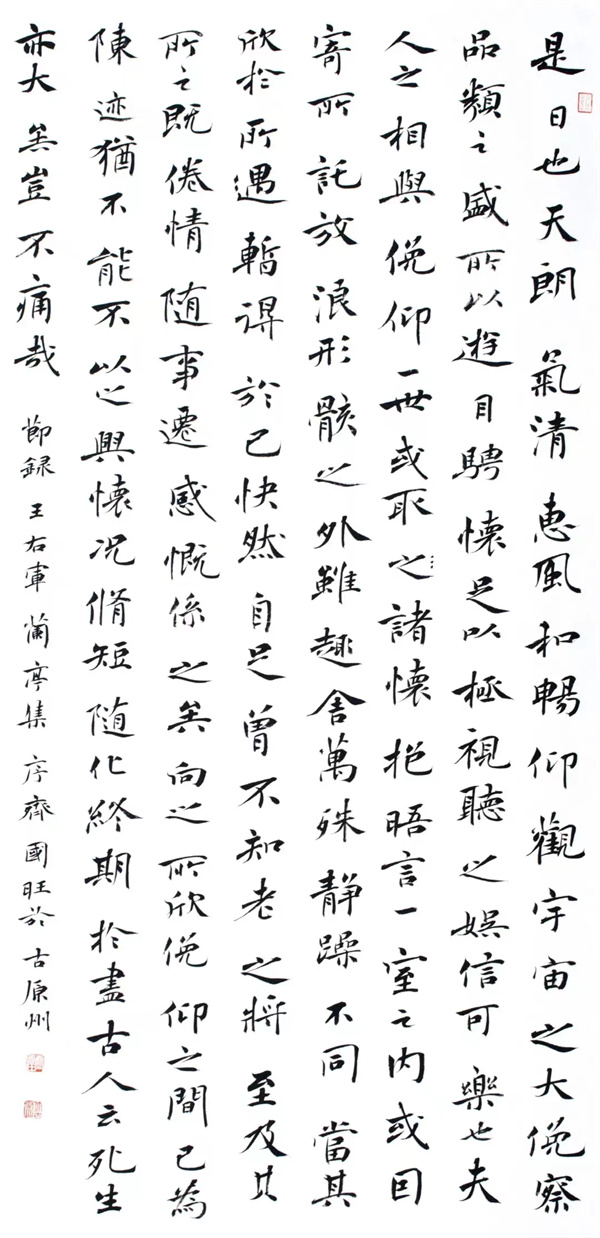 是日也天朗氣清惠風和暢仰觀宇宙之大俛察
品類之盛所以遊目騁懷足以極視聽之娛信可樂也夫
人之相與俛仰一世或取之諸懷抱晤言一室之内或因
寄所託放浪形骸之外雖趣舍萬殊靜躁不同當其
欣於所遇暫得於己快然自足曾不知老之將至及其
所之既倦情随事遷感慨係之矣向之所欣俛仰之間已為
陳迹猶不能不以之興懷况脩短随化終期於盡古人云死生
亦大矣豈不痛哉 節録王右軍蘭亭集序齊國旺於古原州